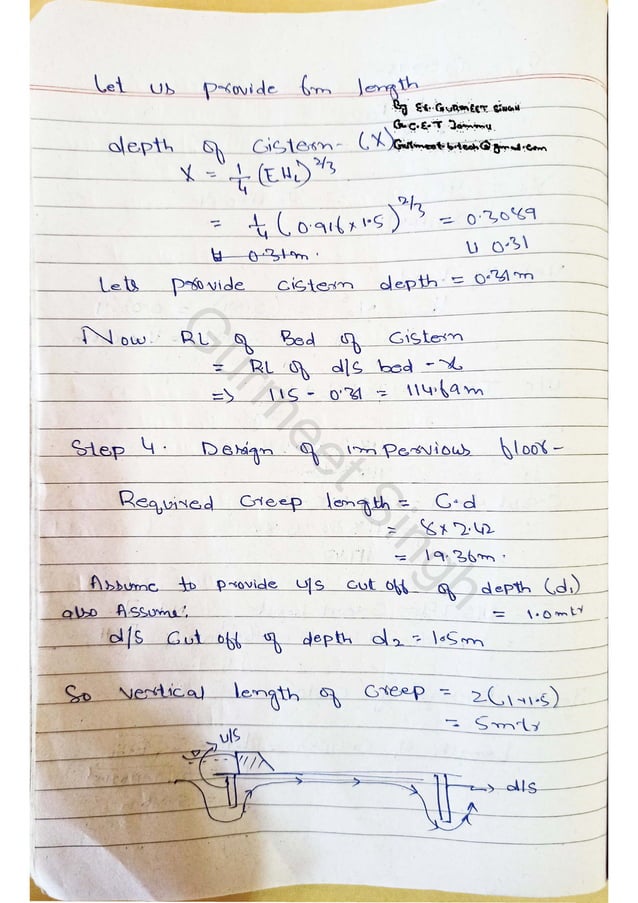 Let us provide 6m length
By Er. GURMEET SINGH
G.C.E.T Jammu
Gurmeet.b.tech@gmail.com
depth of Cistern- (X)
X = 1/4 (E HL)^2/3
= 1/4 (0.916x1.5)^2/3 = 0.3089
≃ 0.31m. ≃ 0.31
Lets provide cistern depth = 0.31m
Now RL of Bed of Cistern
= RL of d/s bed - x
=> 115 - 0.31 = 114.69m
Step 4. Design of impervious floor-
Required Creep length = C.d
= 8x2.42
= 19.36m.
Assume to provide u/s cut off of depth (d1)
also Assume: = 1.0mtr
d/s Cut off of depth d2 = 1.5m
So vertical length of Creep = 2(1+1.5)
= 5mtr
u/s
d/s
Gurmeet Singh